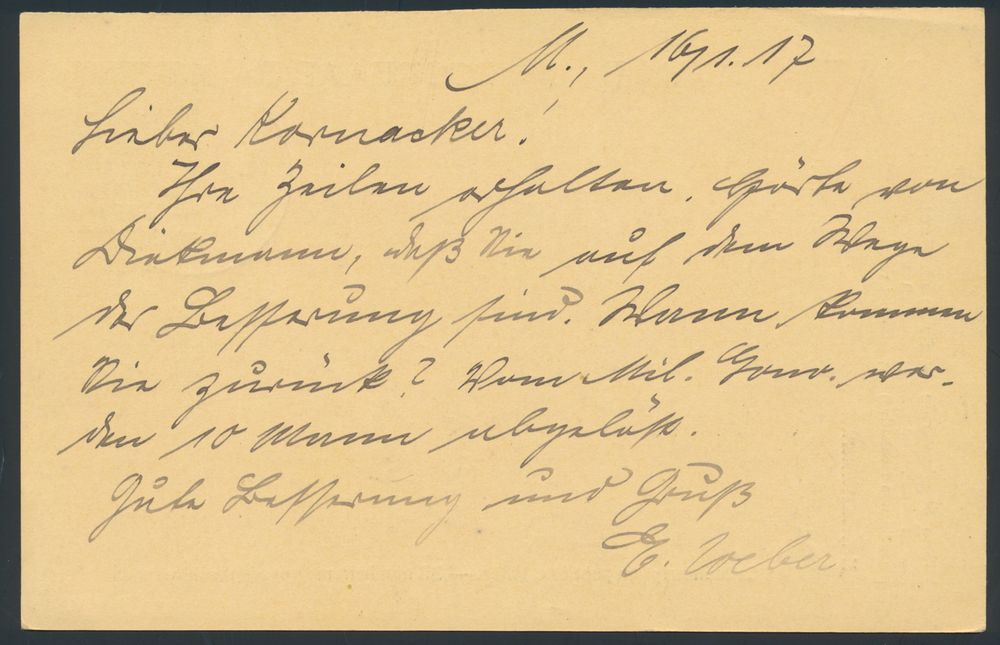 M., 16/1. 17
Lieber Kornacker!
Ihre Zeilen erhalten. Hörte von
Diekmann, daß Sie auf dem Wege
der Besserung sind. Wann kommen
Sie zurück? Vom Mil. Gouv. wer-
den 10 Mann abgelöst.
Gute Besserung und Gruß
E. Weber